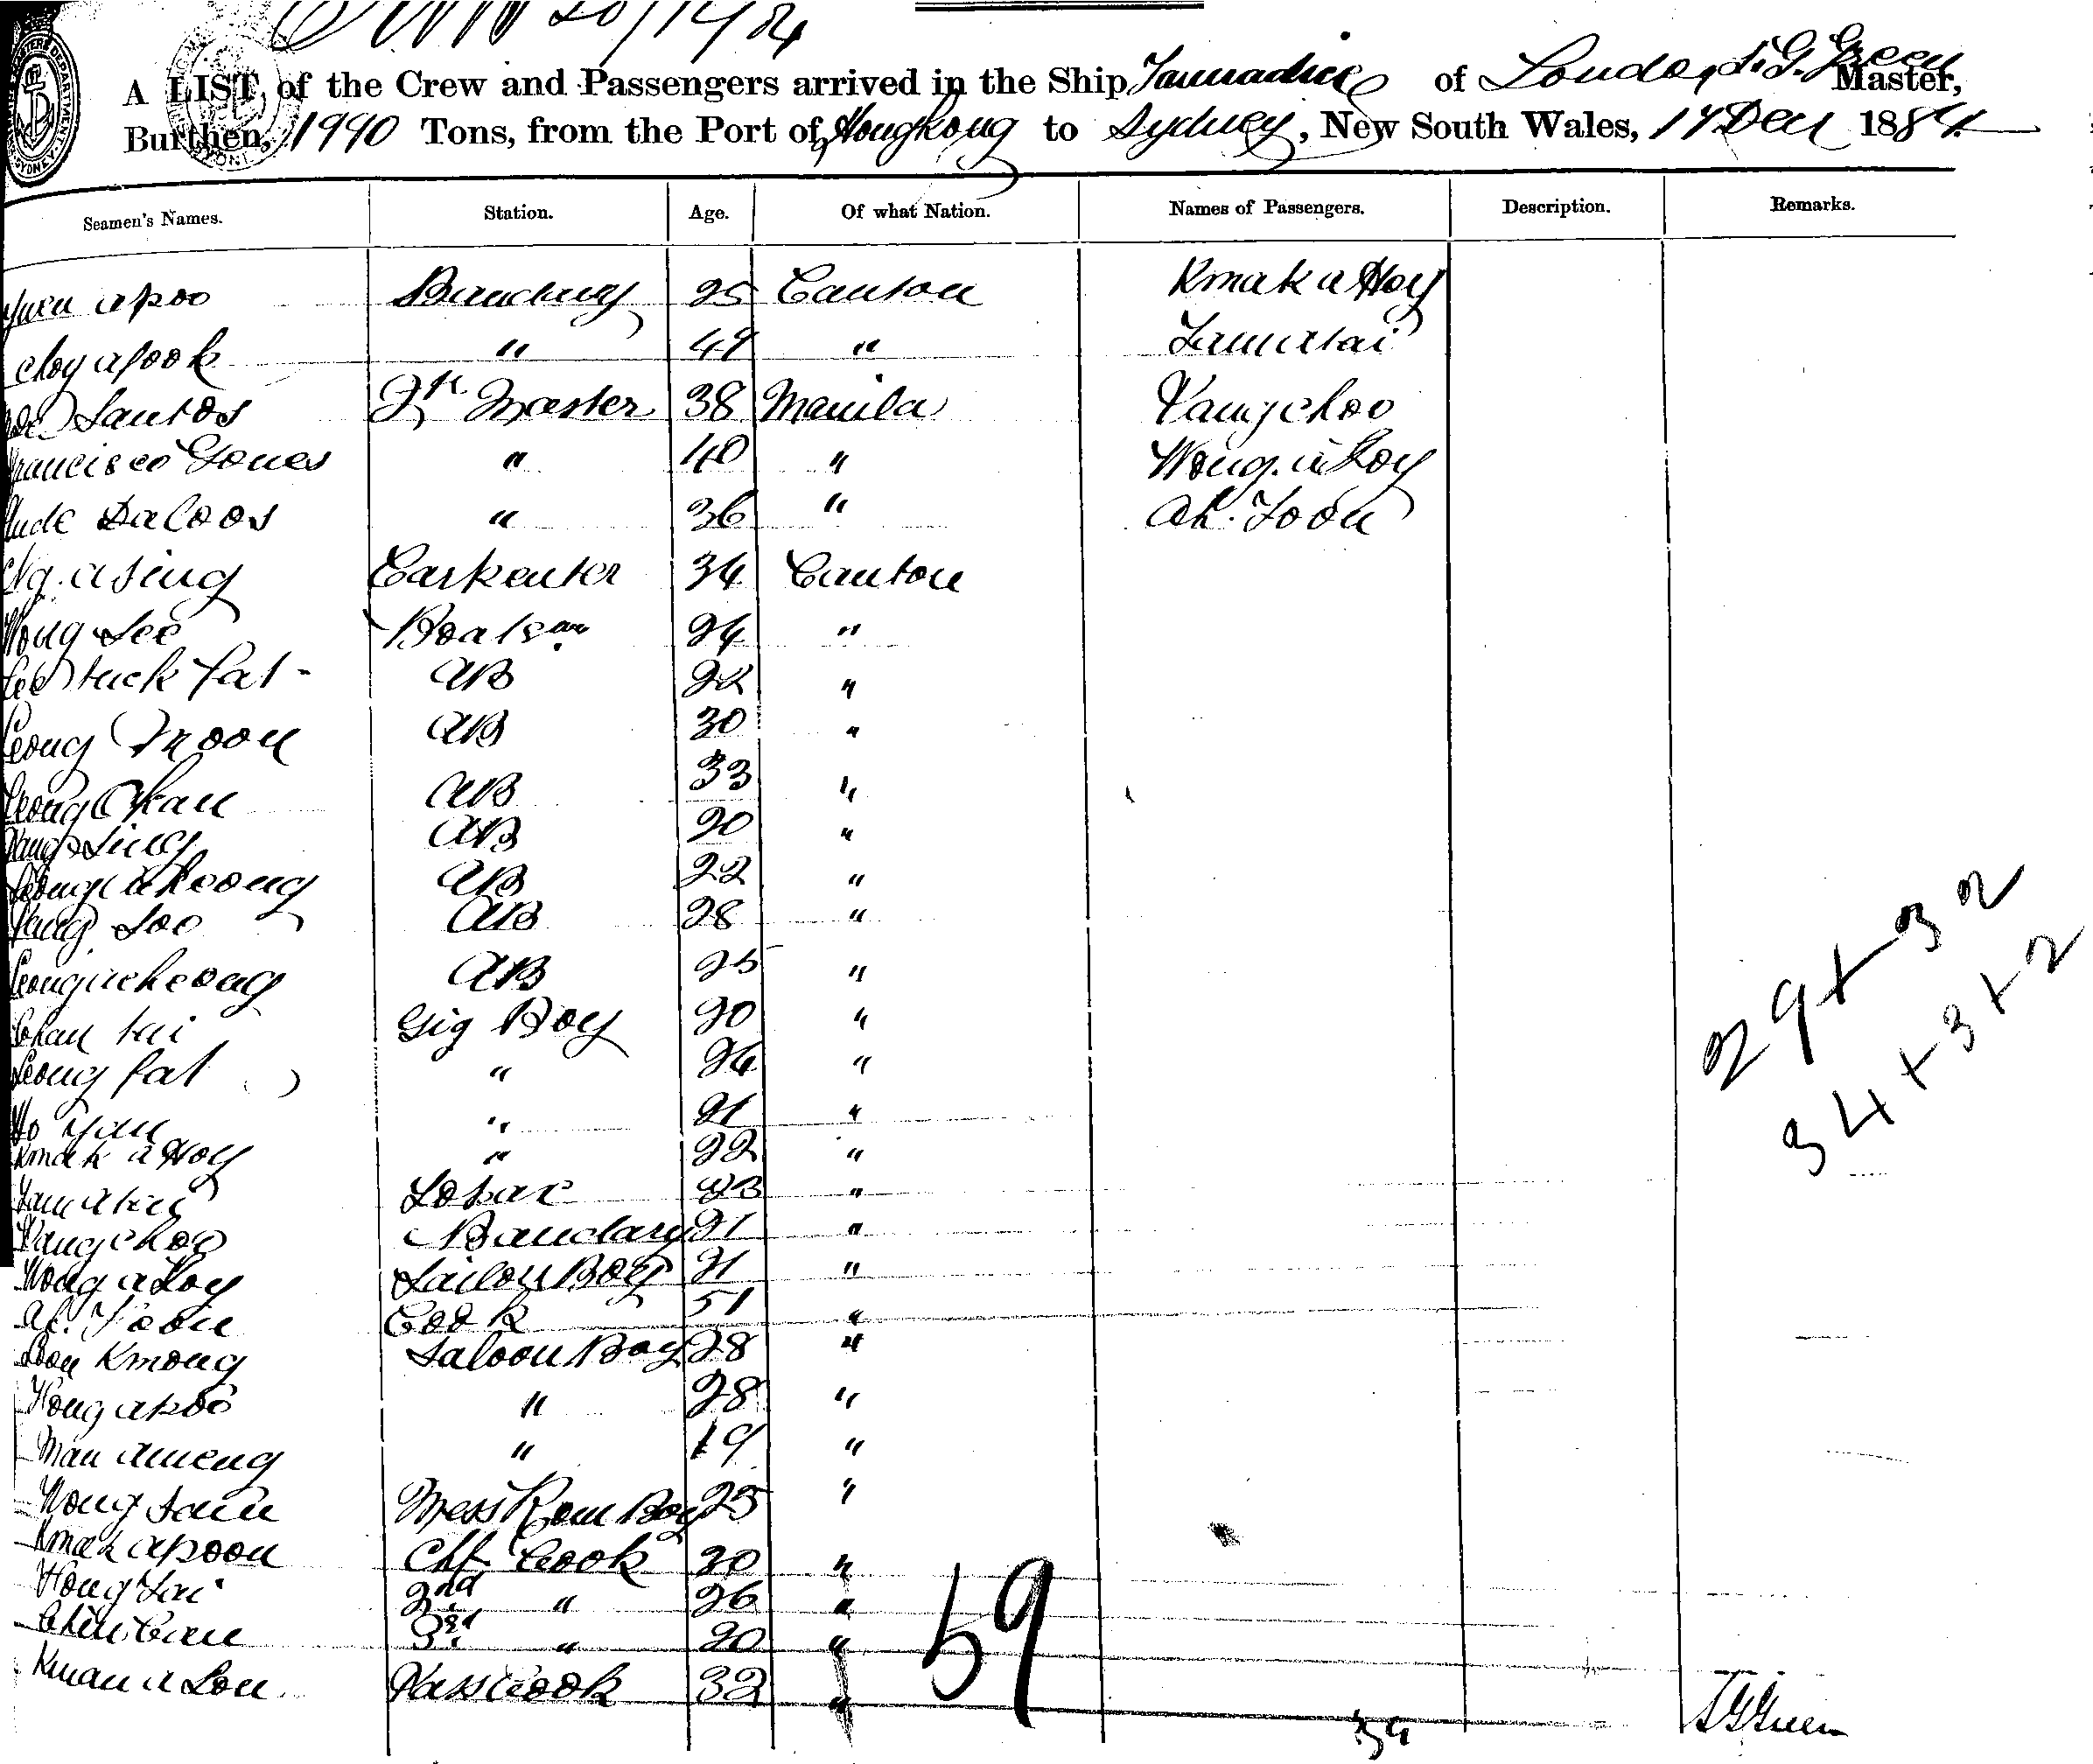 A LIST of the Crew and Passengers arrived in the Ship Tannadice of London, S. G. Green Master,
Burthen, 1990 Tons, from the Port of Hongkong to Sydney, New South Wales, 17 Dec 1884
Seamen's Names. Station. Age. Of what Nation. Names of Passengers. Description. Remarks.
apoo 25 Canton Kmak a Hoy
Choy afook " 49 "
Santos Master 38 Manila Yangchoo
Francisco Gomes " 40 " Wong a Loy
" 36 " Ah. Foon
Ng. asing Carpenter 34 Canton
Wong See Boatsn 24 "
Lee tuck fat AB 22 "
Leong Moon AB 30 "
Leong AB 33 "
AB 20 "
AB 22 "
Soo AB 28 "
Leong acheong AB 25 "
Chan tai Gig Boy 20 "
Leong fat " 24 "
Ho Yan " 21 "
Kmak a Hoy " 22 "
"
Yangchoo Bandary 21 "
Wong a Loy Sailors Boy 21 "
Ah. Foon Cook 51 "
Kmong Saloon Boy 28 "
apoo " 28 "
Man ameng " 19 "
Wong Mess Room Boy 25 "
Kmak apoon Chf Cook 30 "
2nd " 26 "
3rd " 20 "
Kwan a Lon Pass Cook 32 "
29+32
34+3+2
59
59